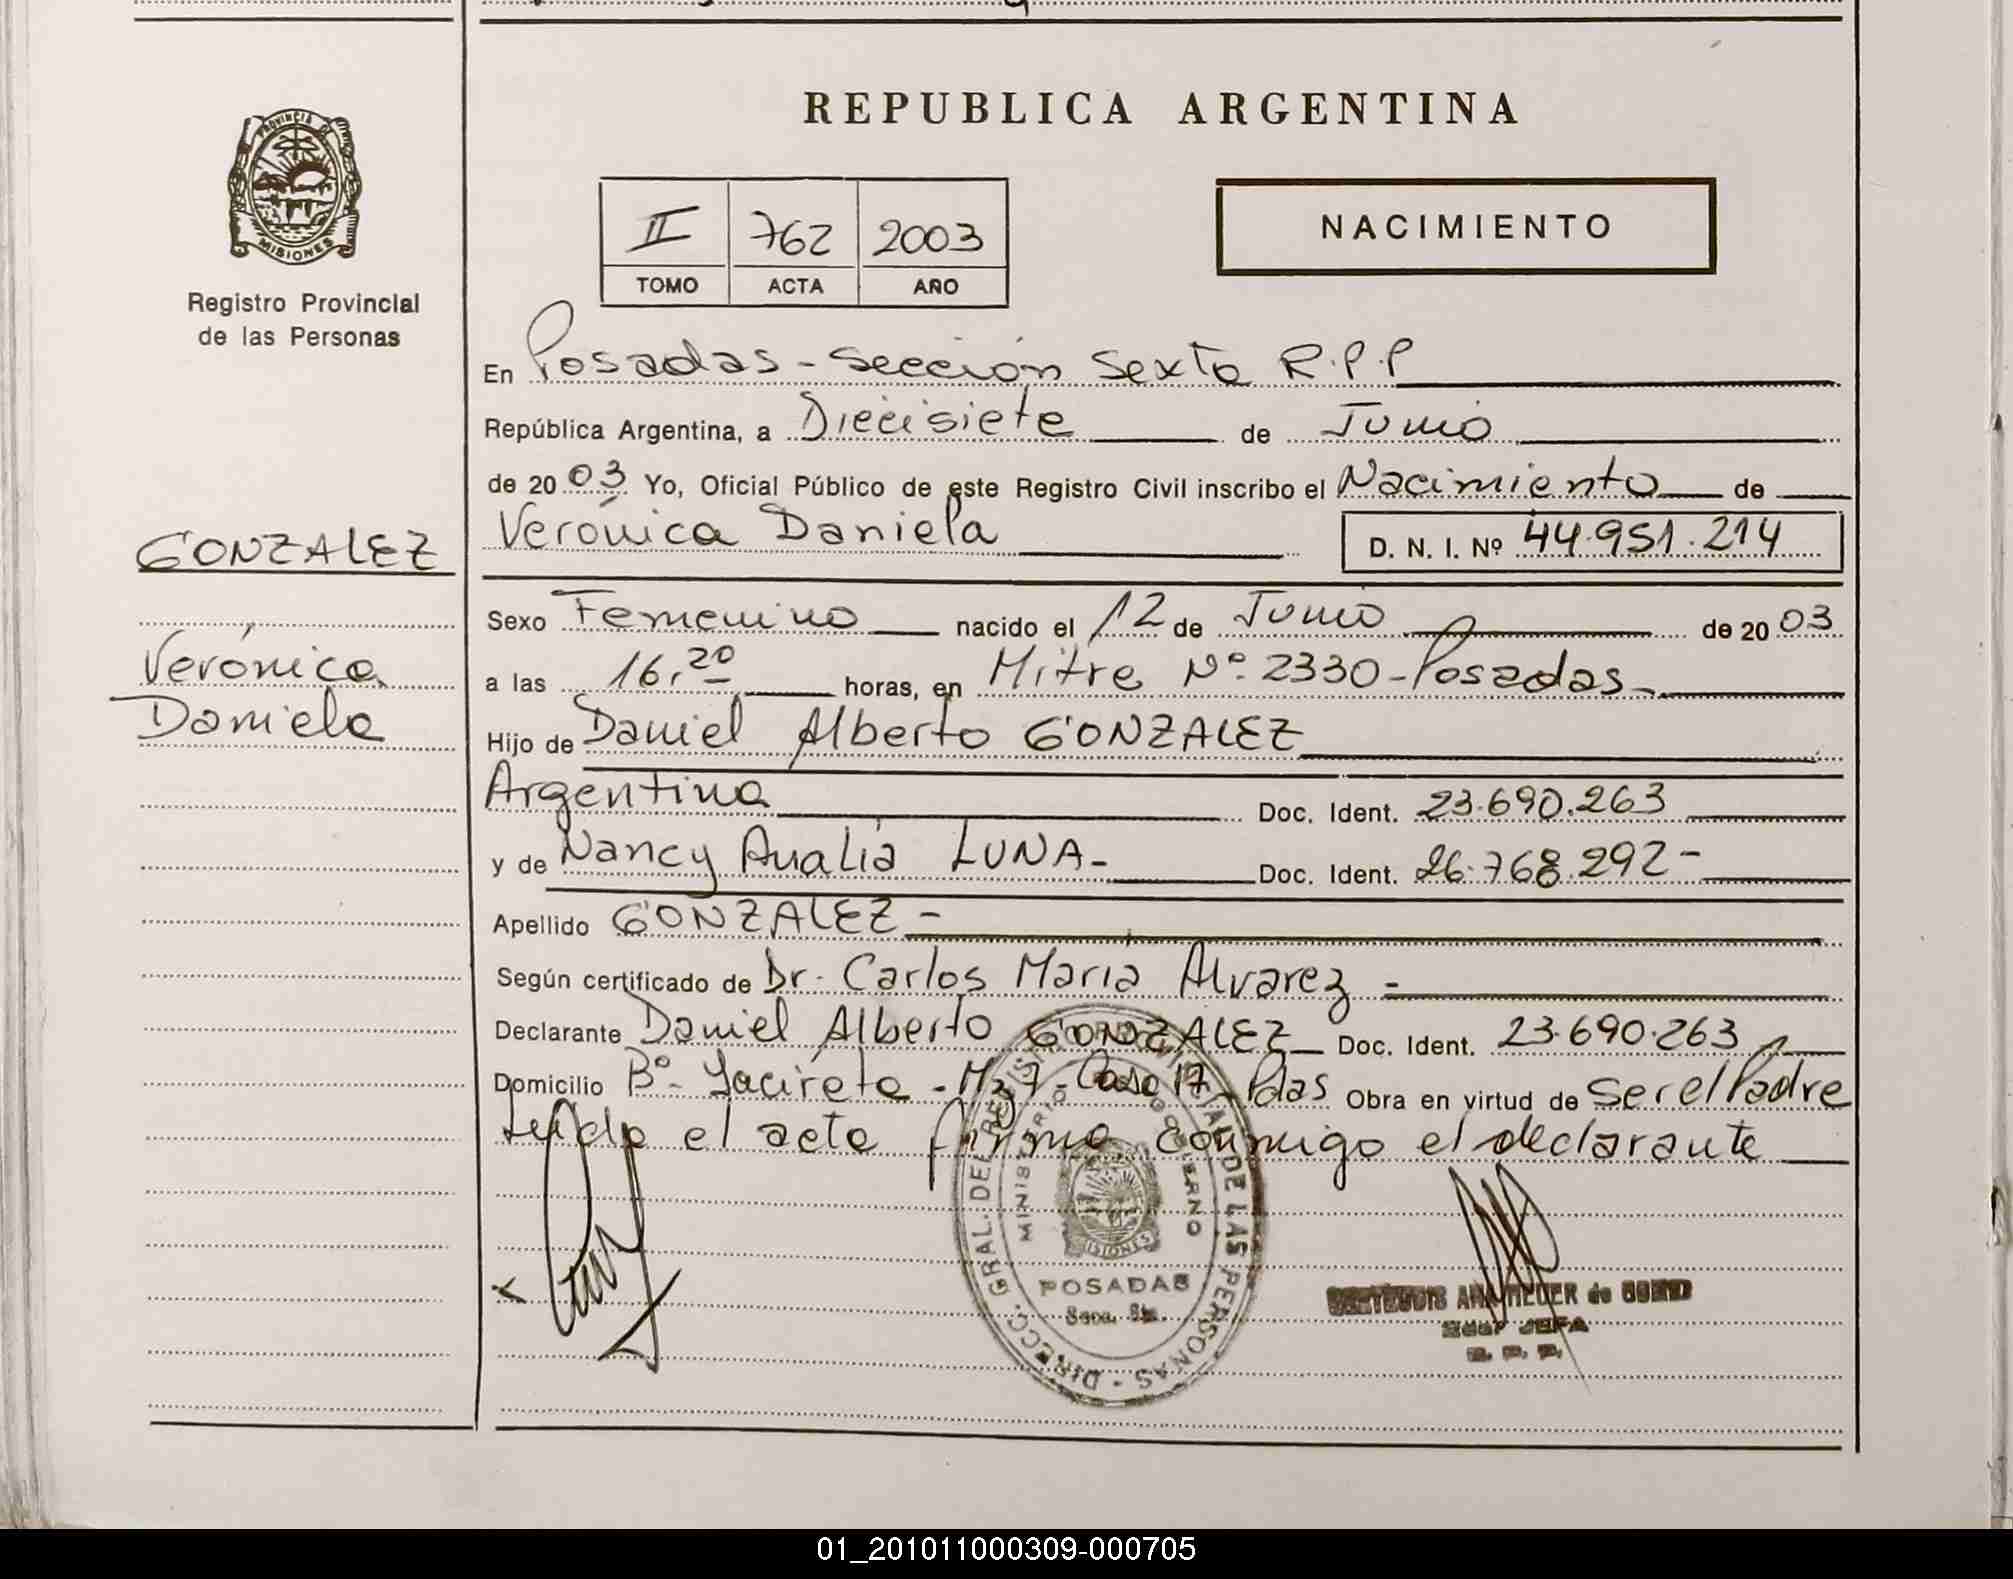 PROVINCIA DE
MISIONES
Registro Provincial
de las Personas
GONZALEZ
Verónica
Daniela
REPUBLICA ARGENTINA
II 762 2003
TOMO ACTA AÑO
NACIMIENTO
En Posadas - Sección Sexta R.P.P
República Argentina, a Diecisiete de Junio
de 20 03 Yo, Oficial Público de este Registro Civil inscribo el Nacimiento de
Verónica Daniela D. N. I. Nº 44.951.214
Sexo Femenino nacido el 12 de Junio de 20 03
a las 16,20 horas, en Mitre Nº 2330 - Posadas -
Hijo de Daniel Alberto GONZALEZ
Argentina Doc. Ident. 23.690.263
y de Nancy Analía LUNA - Doc. Ident. 26.768.292 -
Apellido GONZALEZ -
Según certificado de Dr. Carlos María Alvarez -
Declarante Daniel Alberto GONZALEZ Doc. Ident. 23.690.263
Domicilio Bº - Yacireta - Mz 7 - Casa 17 - Pdas Obra en virtud de Ser el Padre
Leída el acta firma conmigo el declarante
DIRECC. GRAL. DEL REGISTRO PROVINCIAL DE LAS PERSONAS
MINISTERIO DE GOBIERNO
MISIONES
POSADAS
JEFA
R. P. P.
01_201011000309-000705